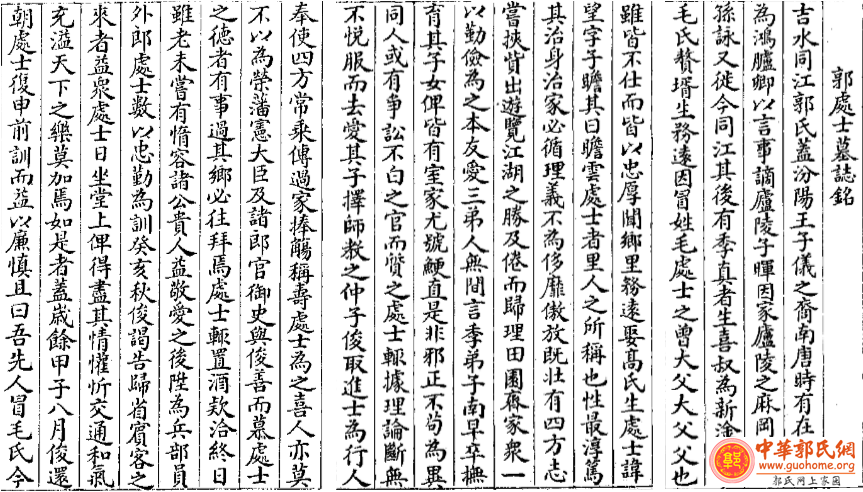 郭處士墓誌銘
吉水同江郭氏蓋汾陽王子儀之裔南唐時有在
為鴻臚卿以言事謫廬陵子暉因家廬陵之麻岡
孫詠又徙今同江其後有季真者生喜叔為新淦
毛氏贅壻生務遠因冒姓毛處士之曾大父大父父也
雖皆不仕而皆以忠厚聞鄉里務遠娶高氏生處士諱
望字子瞻其曰瞻雲處士者里人之所稱也性最淳篤
其治身治家必循理義不為侈靡傲放既壯有四方志
嘗挾貲出遊覽江湖之勝及倦而歸理田園齋家衆一
以勤儉為之本友愛三弟人無間言季弟子南早卒撫
育其子女俾皆有室家尤號鯁直是非邪正不苟為異
同人或有爭訟不白之官而質之處士輒據理論斷無
不悅服而去愛其子擇師教之仲子俊取進士為行人
奉使四方常乘傳過家捧觴稱壽處士為之喜人亦莫
不以為榮藩憲大臣及諸郎官御史與俊善而慕處士
之德者有事過其鄉必往拜焉處士輒置酒欵洽終日
雖老未嘗有惰容諸公貴人益敬愛之後陞為兵部員
外郎處士數以忠勤為訓癸亥秋俊謁告歸省賓客之
來者益衆處士日坐堂上俾得盡其情懽忻交通和氣
充溢天下之樂莫加焉如是者蓋歲餘甲子八月俊還
朝處士復申前訓而益以廉慎且曰吾先人冒毛氏今
中華郭氏網
www.guohome.org
郭氏网上家園